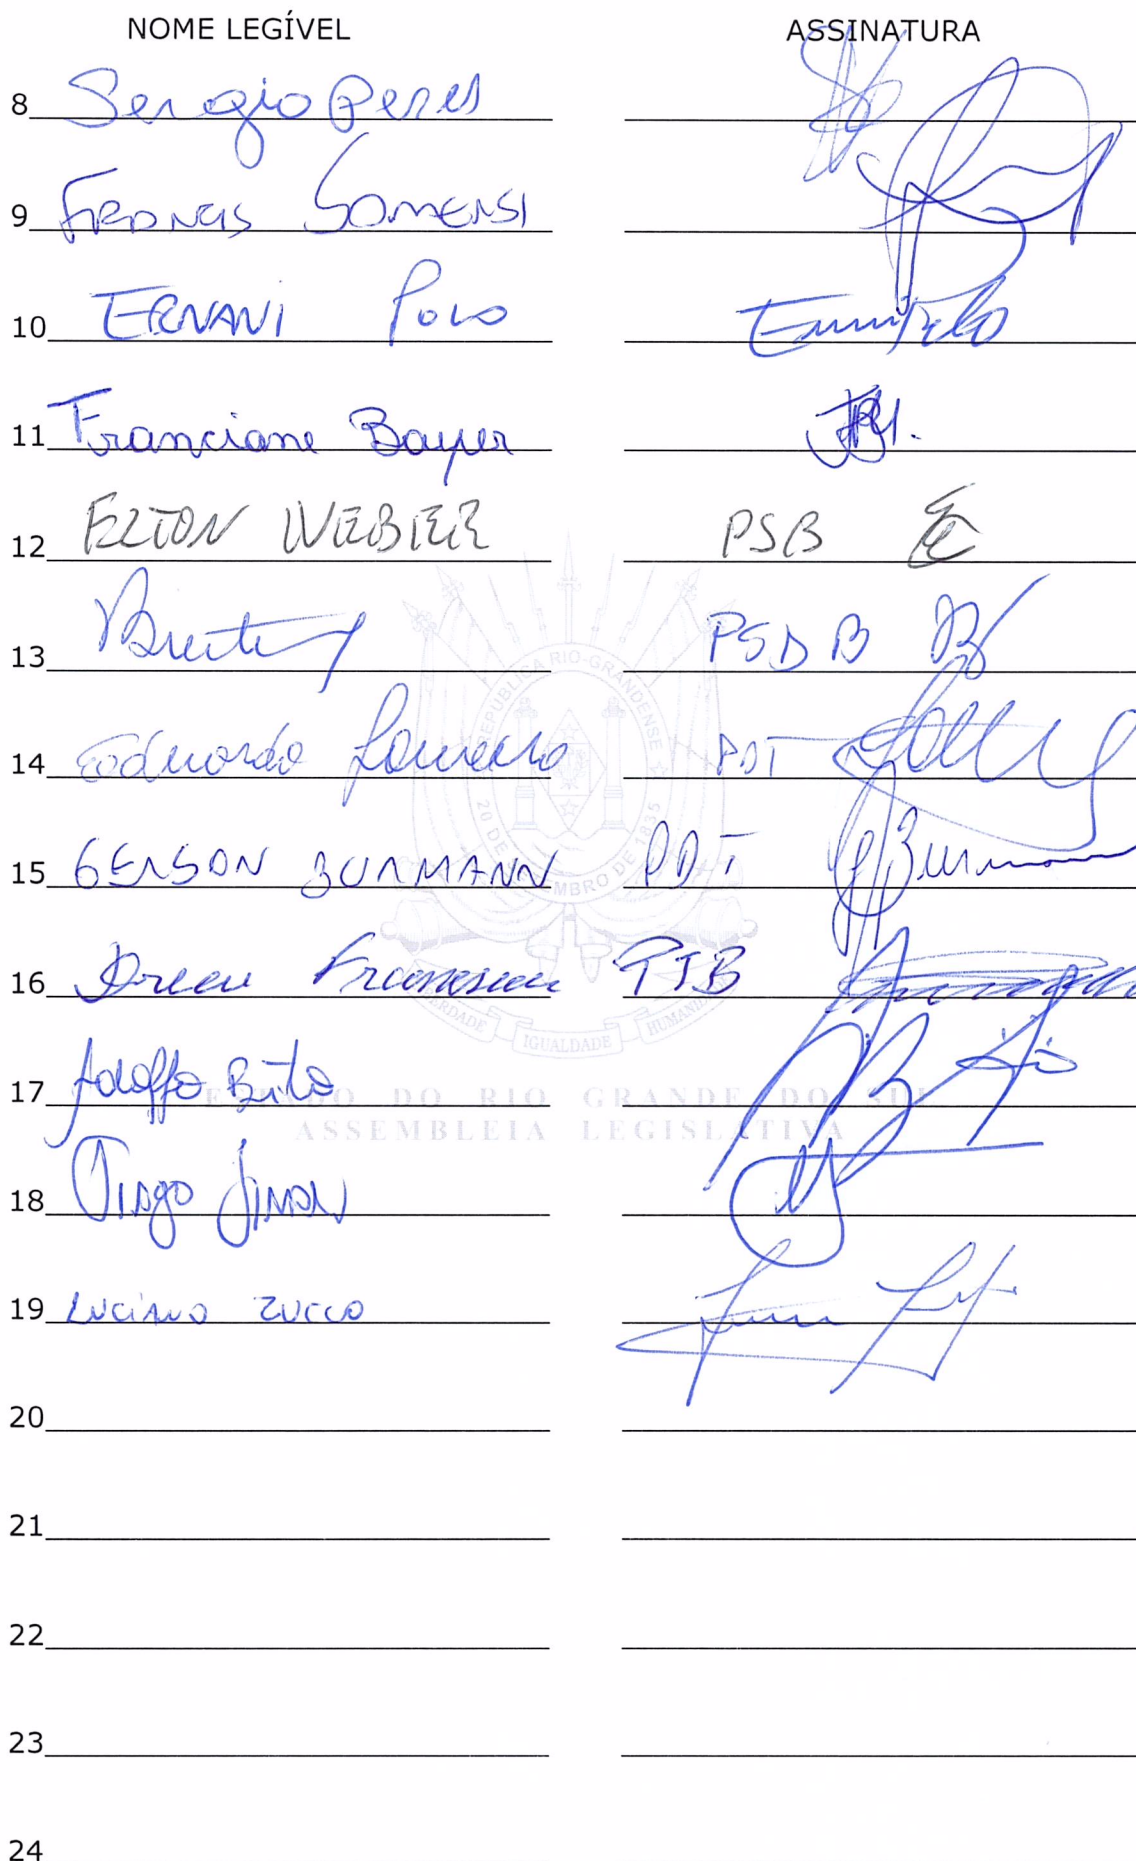 NOME LEGÍVEL ASSINATURA
8 Sergio Peres
9 Francis Somensi
10 ERNANI Polo
11 Franciane Bayer
12 ELTON WEBER PSB
13 PSDB
14 Eduardo Loureiro PDT
15 GERSON BURMANN PDT Burmann
16 Dirceu Franciscon PTB
17 Adolfo Brito
18 Tiago Simon
19 Luciano Zucco
20
21
22
23
24
REPÚBLICA RIO-GRANDENSE
20 DE SETEMBRO DE 1835
LIBERDADE IGUALDADE HUMANIDADE
ESTADO DO RIO GRANDE DO SUL
ASSEMBLEIA LEGISLATIVA